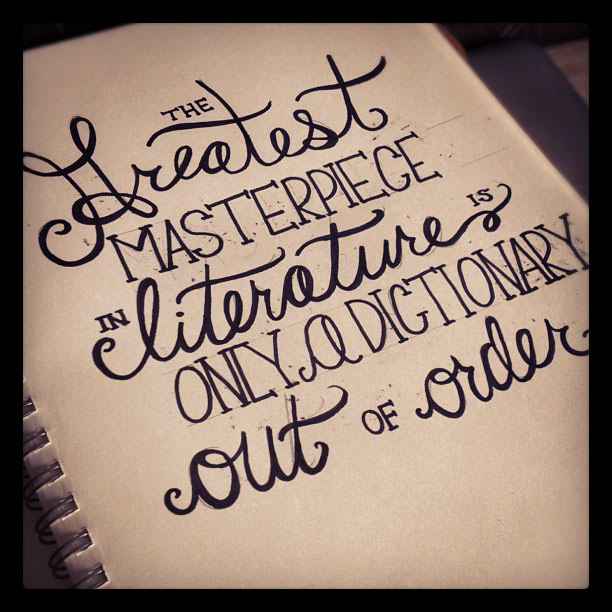 THE
Greatest
MASTERPIECE
IN literature IS
ONLY a DICTIONARY
out OF order